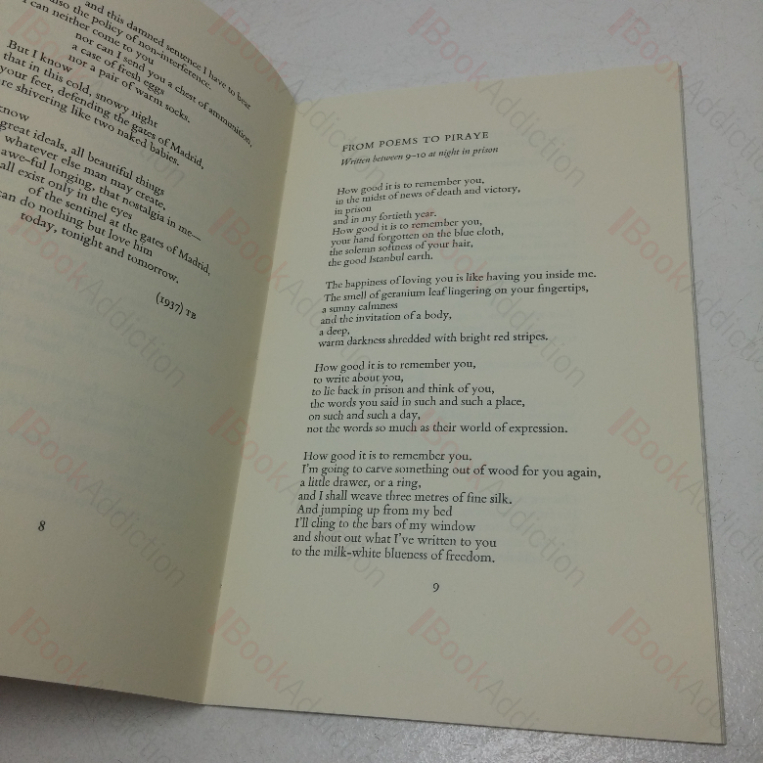 and this damned sentence I have to bear
also the policy of non-interference.
I can neither come to you
nor can I send you a chest of ammunition,
a case of fresh eggs
nor a pair of warm socks.
But I know
that in this cold, snowy night
your feet, defending the gates of Madrid,
are shivering like two naked babies.
know
great ideals, all beautiful things
whatever else man may create,
awe-ful longing, that nostalgia in me—
all exist only in the eyes
of the sentinel at the gates of Madrid,
can do nothing but love him
today, tonight and tomorrow.
(1937) TB
8
FROM POEMS TO PIRAYE
Written between 9–10 at night in prison
How good it is to remember you,
in the midst of news of death and victory,
in prison
and in my fortieth year.
How good it is to remember you,
your hand forgotten on the blue cloth,
the solemn softness of your hair,
the good Istanbul earth.
The happiness of loving you is like having you inside me.
The smell of geranium leaf lingering on your fingertips,
a sunny calmness
and the invitation of a body,
a deep,
warm darkness shredded with bright red stripes.
How good it is to remember you,
to write about you,
to lie back in prison and think of you,
the words you said in such and such a place,
on such and such a day,
not the words so much as their world of expression.
How good it is to remember you.
I'm going to carve something out of wood for you again,
a little drawer, or a ring,
and I shall weave three metres of fine silk.
And jumping up from my bed
I'll cling to the bars of my window
and shout out what I've written to you
to the milk-white blueness of freedom.
9
BookAddiction